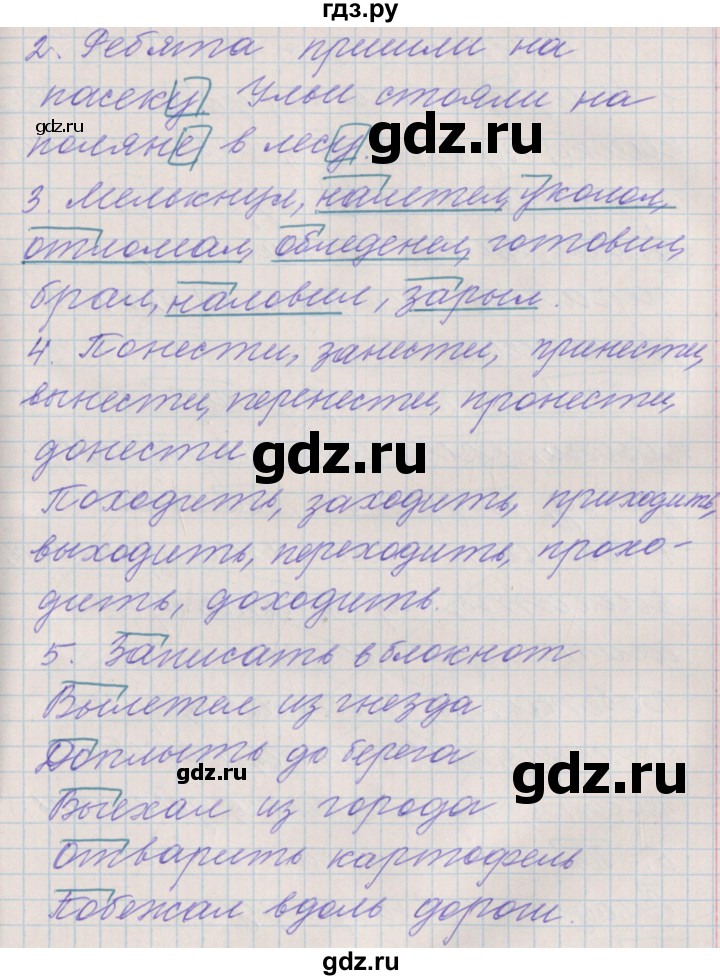 гдз.ру
2. Ребята пришли на
пасеку. Ульи стояли на
gdz.ru
gdz.ru
поляне в лесу.
3. Мелькнул, налетел, уколол,
отломал, обледенел, готовил,
брал, наловил, зарыл.
4. Понести, занести, принести,
вынести, перенести, пронести,
донести
gdz.ru
Походить, заходить, приходить,
выходить, переходить, прохо-
дить, доходить.
5. Записать в блокнот
Вылетел из гнезда
Доплыть до берега
gdz.ru
gdz.ru
Выехал из города
Отварить картофель
Побежал вдоль дороги.
gdz.ru